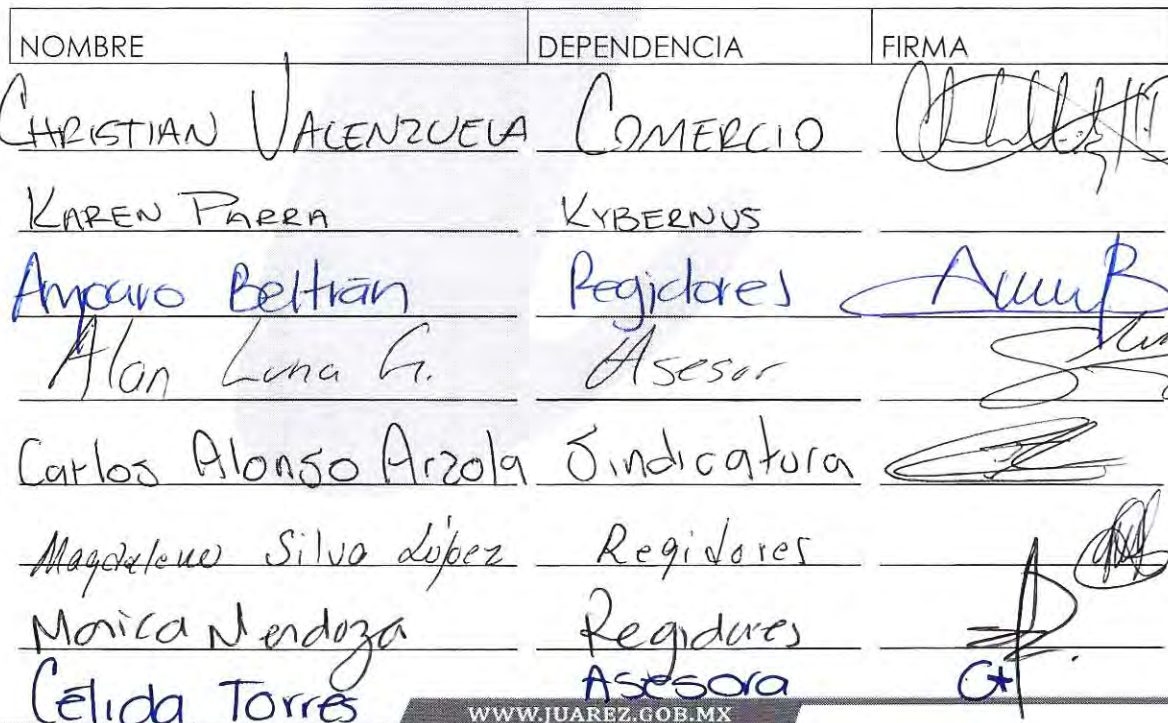 NOMBRE DEPENDENCIA FIRMA
CHRISTIAN VALENZUELA COMERCIO
KAREN PARRA KYBERNUS
Amparo Beltrán Regidores
Alan Luna G. Asesor
Carlos Alonso Arzola Sindicatura
Magdaleno Silva López Regidores
Monica Mendoza Regidores
Célida Torres Asesora Ct
WWW.JUAREZ.GOB.MX